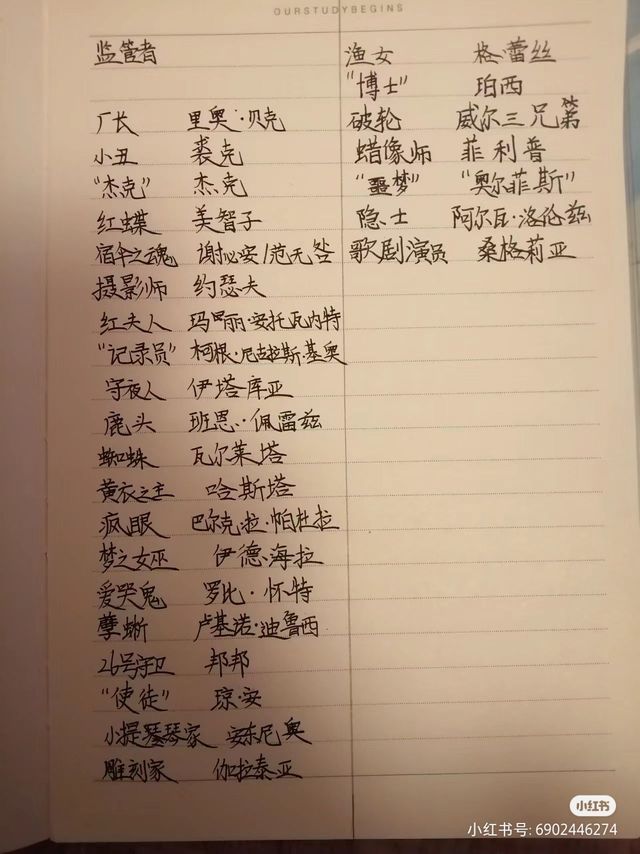 OURSTUDYBEGINS
监管者
厂长 里奥·贝克
小丑 裘克
“杰克” 杰克
红蝶 美智子
宿伞之魂 谢必安/范无咎
摄影师 约瑟夫
红夫人 玛丽·安托瓦内特
“记录员” 柯根·尼古拉斯·基奥
守夜人 伊塔库亚
鹿头 班恩·佩雷兹
蜘蛛 瓦尔莱塔
黄衣之主 哈斯塔
疯眼 巴尔克·拉·帕杜拉
梦之女巫 伊德·海拉
爱哭鬼 罗比·怀特
孽蜥 卢基诺·迪鲁西
26号守卫 邦邦
“使徒” 琼·安
小提琴家 安东尼奥
雕刻家 伽拉泰亚
渔女 格·蕾丝
“博士” 珀西
破轮 威尔三兄弟
蜡像师 菲利普
“噩梦” “奥尔菲斯”
隐士 阿尔瓦·洛伦兹
歌剧演员 桑格莉亚
小红书
小红书号: 6902446274